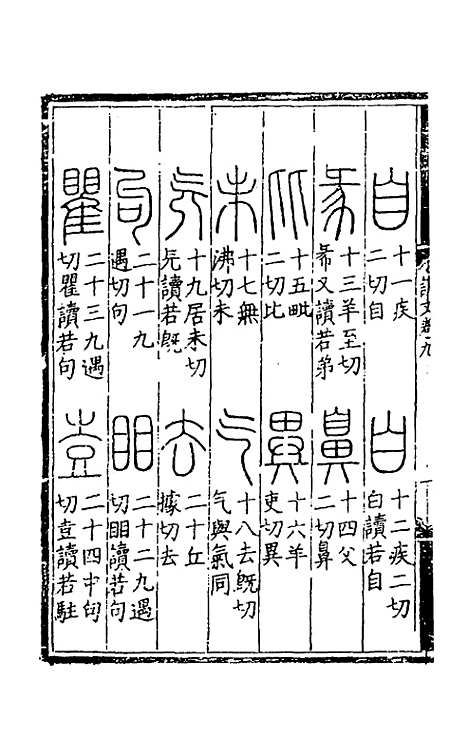 自
十一疾
二切自
白
十二疾二切
白讀若自
㣇
十三羊至切
㣇又讀若弟
鼻
十四父
二切鼻
比
十五毗
二切比
異
十六羊
吏切異
未
十七無
沸切未
气
十八去旣切
气與氣同
旡
十九居未切
旡讀若旣
去
二十丘
據切去
句
二十一九
遇切句
䀠
二十二九遇
切䀠讀若句
瞿
二十三九遇
切瞿讀若句
壴
二十四中句
切壴讀若駐